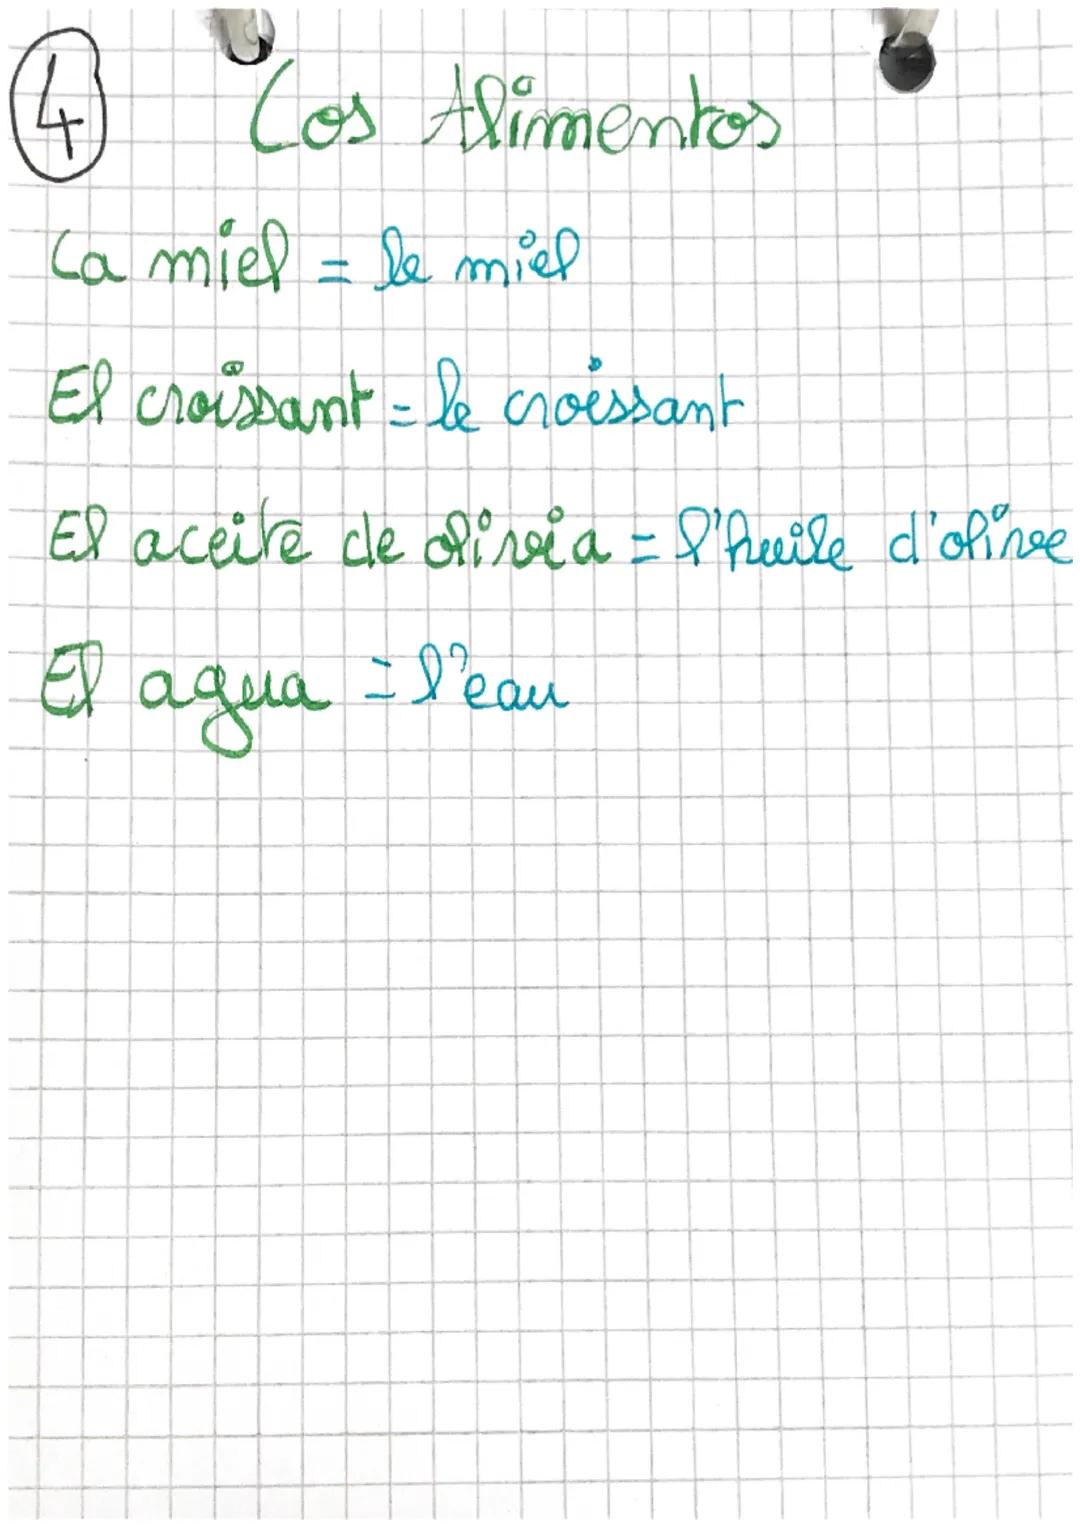 4
Los Alimentos
La miel = le miel
El croissant = le croissant
El aceite de olivia = l'huile d'olive
El agua = l'eau